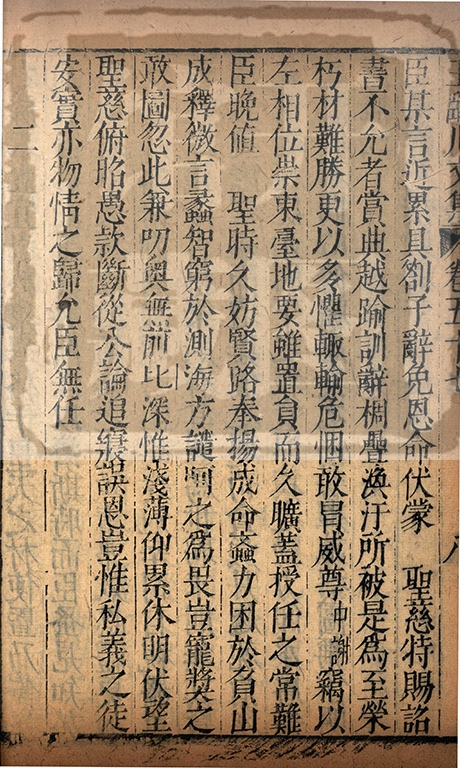 臣某言近累具劄子辭免恩命伏蒙　聖慈特賜詔
書不允者賞典越踰訓辭稠疊渙汗所被是為至榮
朽材難勝更以多懼輙輸危悃敢冒威尊中謝竊以
左相位崇東臺地要雖置員而久曠蓋授任之常難
臣晚值　聖時久妨賢路奉揚成命蟁力困於負山
成釋微言蠡智窮於測海方譴訶之為畏豈寵奬之
敢圖忽此兼叨輿無前比深惟淺薄仰累休明伏望
聖慈俯昭愚款斷從公論追寢誤恩豈惟私義之徒
安實亦物情之歸允臣無任
二
文集
卷五十七
八